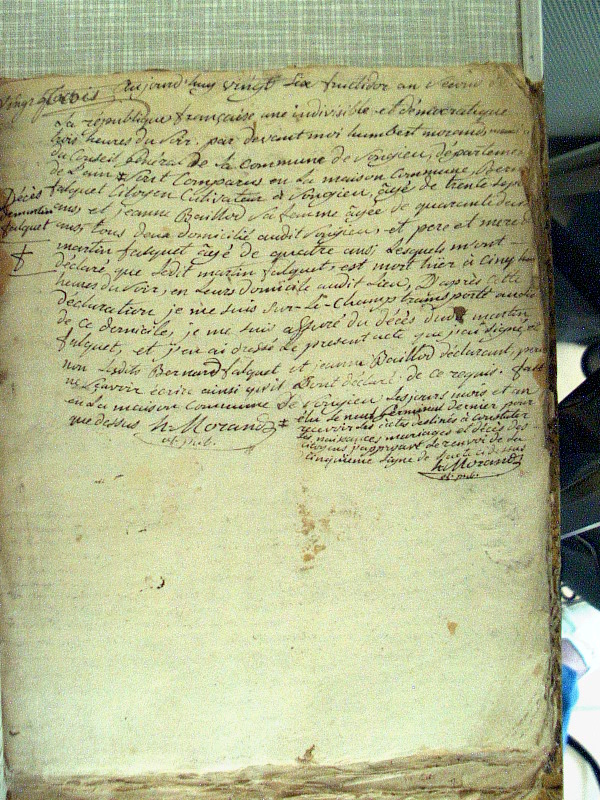 Vingt trois Aujourd'huy vingt six fructidor an second de
La république française une indivisible et démocratique
trois heures du soir, par devant moi humbert morand
du Conseil général de la commune de Songieu, département
de L'ain Sont Comparus en La maison Commune, Bernard
Décès
de martin
falquet
falquet Citoyen Cultivateur à Songieu, âgé de trente sept
ans, et jeanne Baillod Sa femme âgée de quarante deux
ans, tous deux domiciliés audit Songieu, et pere et mere de
martin falquet âgé de quatre ans, Lesquels m'ont
déclaré, que Ledit martin falquet, est mort hier à cinq
heures du Soir, en Leurs domicile audit Lieu, D'après cette
déclaration je me suis Sur-Le-Champs transporté au Lieu
de ce domicile, je me suis assuré du décès dudit martin
falquet, et j'en ai dressé Le présent acte que j'ai signé, et
non Lesdits Bernard falquet et jeanne Baillod déclarant, pour
ne Sçavoir écrire ainsi qu'ils L'ont déclaré de ce requis. fait
en La maison Commune de Songieu Les jours mois et an
que dessus h. Morand
of. pub.
élu Le neuf Germinal dernier pour
recevoir Les actes destinés à constater
Les naissances mariages et décès des
citoyens j'approuve Le renvoi de la
cinquième Ligne de l'acte ci dessus
h. Morand
of. pub.